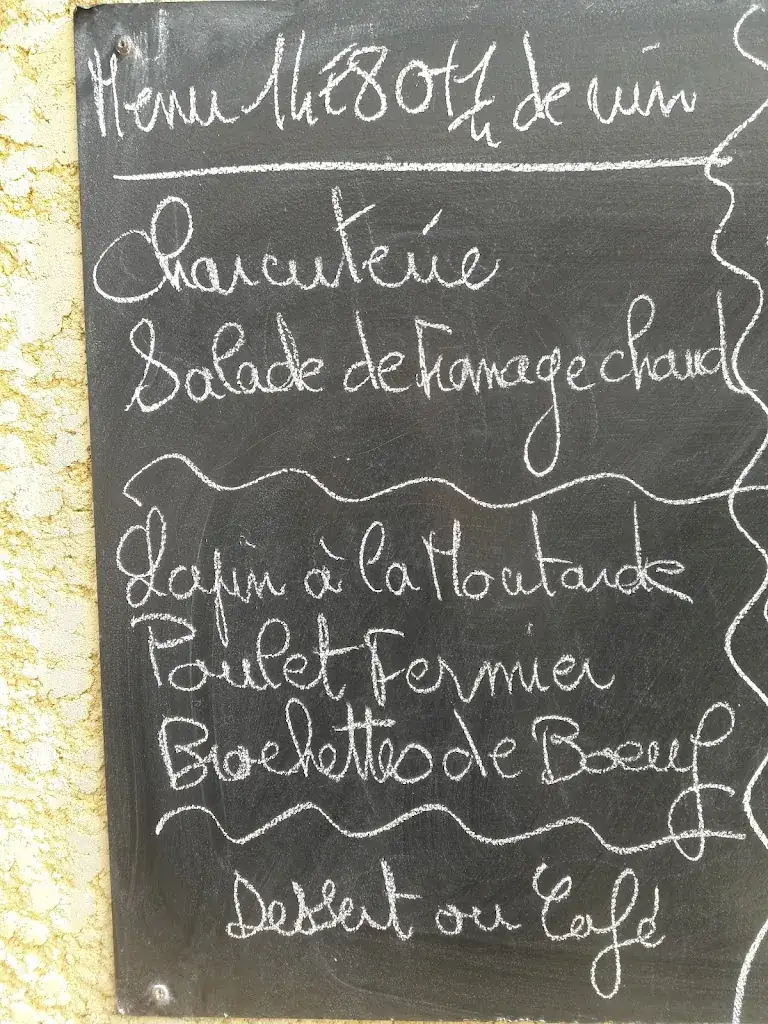 Menu 14€80+1/4 de vin
Charcuterie
Salade de Fromage chaud
Lapin à la Moutarde
Poulet Fermier
Brochettes de Boeuf
Dessert ou Café